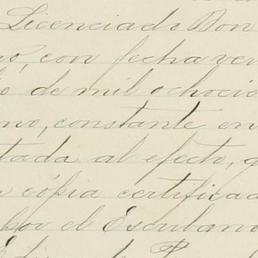 Licenciado Don
con fecha ve
de mil ochocie
no, constante en
tada al efecto, q
cópia certificad
por el Escribano